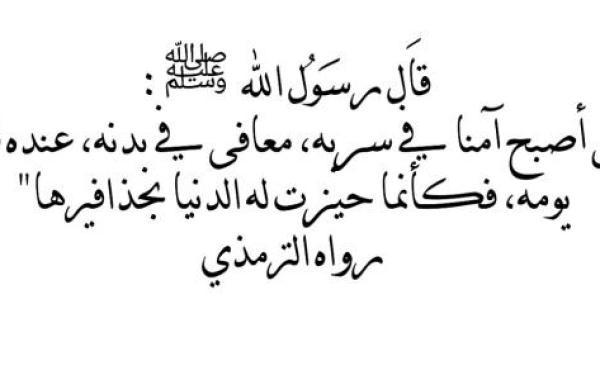 قَالَ رسَوُل الله ﷺ :
أصبح آمنا في سربه، معافى في بدنه، عنده
يومه، فكأنما حيزت له الدنيا بحذافيرها"
رواه الترمذي